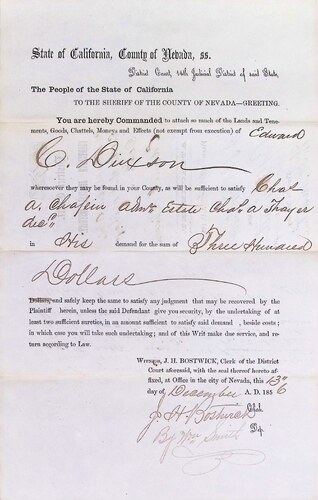 State of California, County of Nevada, ss.
District Court, 14th Judicial District of said State,
The People of the State of California
TO THE SHERIFF OF THE COUNTY OF NEVADA—GREETING.
You are hereby Commanded to attach so much of the Lands and Tene-
ments, Goods, Chattels, Moneys and Effects (not exempt from execution) of Edward
C. Dixson
wheresoever they may be found in your County, as will be sufficient to satisfy Chas
A. Chafein Adm. Estate Chas. A Thayer
decd
in His demand for the sum of Three Hundred
Dollars
Dollars, and safely keep the same to satisfy any judgment that may be recovered by the
Plaintiff herein, unless the said Defendant give you security, by the undertaking of at
least two sufficient sureties, in an amount sufficient to satisfy said demand, beside costs;
in which case you will take such undertaking; and of this Writ make due service, and re-
turn according to Law.
Witness, J. H. BOSTWICK, Clerk of the District
Court aforesaid, with the seal thereof hereto af-
fixed, at Office in the city of Nevada, this 13th
day of December A. D. 1856
J. H. Bostwick Clerk
By Wm Smith Dep.